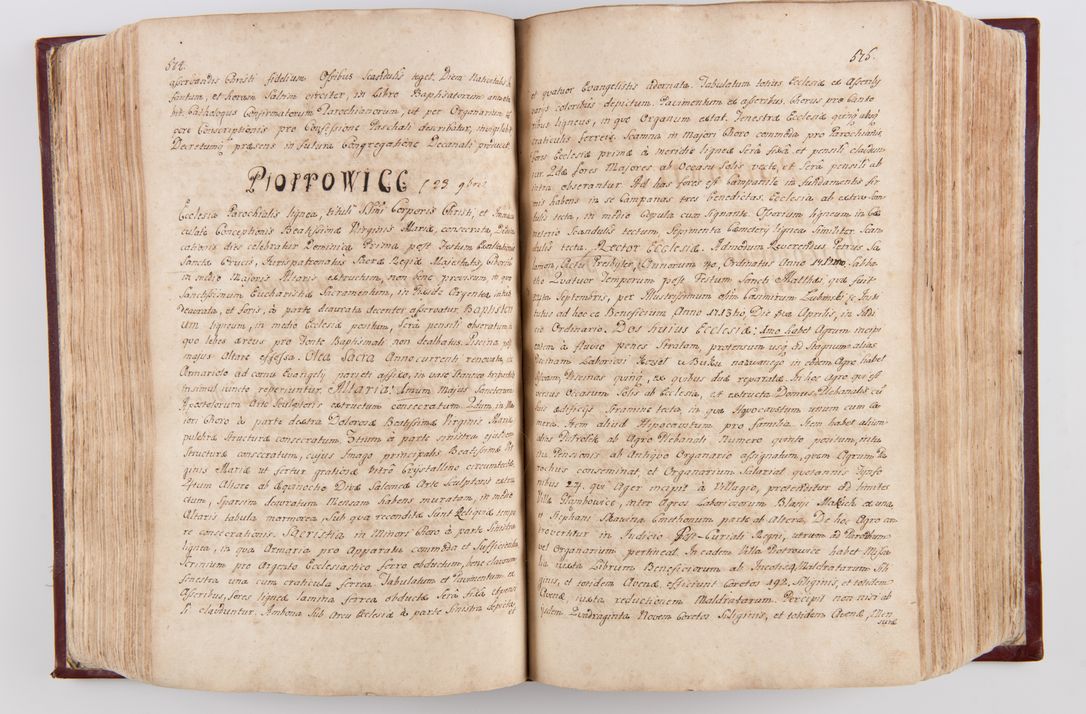 574.
asservandis Christi fidelium Ossibus Scandulis teget, Diem Nativitatis
fantum, et horam Saltim circiter, in Libro Baptisatorum annotabit
Cathologus Confirmatorum Parochianorum, ut per Organarium
Conscriptionis pro Confessione Paschali describatur, invigilabit
Decretumq præsens in futura Congregatione Decanali producet
PIOTROWICE 23 9bris
Ecclesia Parochialis lignea, tituli SSmi Corporis Christi, et Imma
culatæ Conceptionis Beatissimæ Virginis Mariæ, consecrata, Dedi
cationis dies celebratur Dominica Prima post Festum Exaltationis
Sanctæ Crucis, Jurispatronatus Sacræ Regiæ Majestatis, Ciborium
in medio Majoris Altaris extructum, non bene provisum, in quo
Sanctissimum Eucharistiæ Sacramentum, in Pixide Argentea, intus
deaurata, et foris, à parte deaurata decenter asservatur. Baptisteri
um ligneum, in medio Ecclesiæ positum, Serâ pensili obseratum
quo lebes æreus pro Fonte Baptismali non dealbatus. Piscina
majus Altare effossa. Olea Sacra Anno currenti renovata, in
Armariolo ad cornu Evangely parieti affixo, in vase Stanneo
reperiuntur. Altaria: 1mum Majus Sanctorum
Apostolorum Arte Sculptoris extructum consecratum. 2dum, in Ma
jori Choro à parte dextra Dolorosæ Beatissimæ Virginis Mariæ
pulchræ Structuræ consecratum. 3tium à parte sinistra ejusdem
Structuræ consecratum, cujus Imago principalis Beatissimæ Vir
ginis Mariæ ut fertur gratiosa vitrô Crystallino circumtecta
4tum Altare ab Divæ Salomeæ Arte Sculptoris extru
ctum, Sparsim deauratum Mensam habens muratam, in medio
Altaris tabula marmorea Sub qua recondita Sunt Reliquiæ tempo
re consecrationis. Sacristia in Minori Choro à parte Sinistra
lignea, in qua Armaria pro Apparatu commoda et Sufficientia
Scrinium pro Argento Ecclesiastico ferro obductum, bene clausum
fenestra una cum craticula ferrea. Tabulatum et Pavimentum ex
Asseribus, fores ligneæ lamina ferrea obductæ Serâ fixâ et pensi
li clauduntur. Ambona Sub Arcu Ecclesiæ à parte Sinistra depicta
et
575.
et quatuor Evangelistis Adornata. Tabulatum totius Ecclesiæ ex Asserib
varys coloribus depictum. Pavimentum ex asseribus. Chorus pro Canto
ribus ligneus, in quo Organum extat. Fenestræ Ecclesiæ quinq absq
craticulis ferreis. Scamna in Majori Choro commoda pro Parochianis,
fores Ecclesiæ primæ à meridie ligneæ Serâ fixâ et pensili claudun
tur. 2dæ fores Majores ab Occasu Solis vecte, et Serâ pensili ab
intra obserantur. Ad has fores est Campanile in fundamentis fir
mis habens in se Campanas tres benedictas. Ecclesia ab extra Scan
dulis tecta, in medio Cupula cum Signante. Ossorium ligneum in Cæ
meterio Scandulis tectum. Sepimenta Cæmetery lignea Similiter Scan
dulis tecta. Rector Ecclesiæ. Admodum Reverendus Petrus Sa
lomon, Actu Presbyter, Annorum 40, Ordinatus Anno Sabba
tho Quatuor Temporum post Festum Sancti Matthæi, quæ fuit
Septembris, per Illustrissimum olim Casimirum Lubinski Insti
tutus ad hoc ce Beneficium Anno Die 5ta Aprilis, in
cio Ordinario. Dos hujus Ecclesiæ: 1mo habet Agrum incipi
entem à fluvio penes Stratam, protensum usq ad Stagnum alias
Laboriosi Kozieł w Buku nazwanego in eodem Agro habet
Piscinas quinq, ex quibus duæ reparatæ. In hoc Agro
versus Occasum Solis ab Ecclesia, est extructa Domus Plebanalis
ædificys Stramine tecta, in qua Hypocaustum unum cum Ca
mera. Item aliud Hypocaustum pro familia. Item habet alium
alias ab Agro Plebanali, Numero quinto positum,
Pensionis ab Antiquo Organario assignatum, quem Agrum Pa
rochus conseminat, et Organarium Salariat quotannis Tynfo
nibus 27. qui Ager incipit à Villagio, protenditur ad limites
Villæ inter Agros Laboriosorum Blasy Makich ex una,
et Stephani Skawena Cmethonum parte ab altera. De hoc Agro con
trovertitur in Judicio Post-Curiali Regni, utrum ad Parochum
vel Organarium pertineat. In eadem Villa Piotrowice habet Missa
lia juxta Librum Beneficiorum ab Incolis, Maldratarum Sili
ginis, et totidem Avenæ, efficiunt Coretos 192, Siliginis, et totidem
Avenæ juxta reductionem Maldratarum. Percipit non nisi ab
ijsdem Quadraginta Novem Coretos Siliginis, et totidem Avenæ, Men
suræ